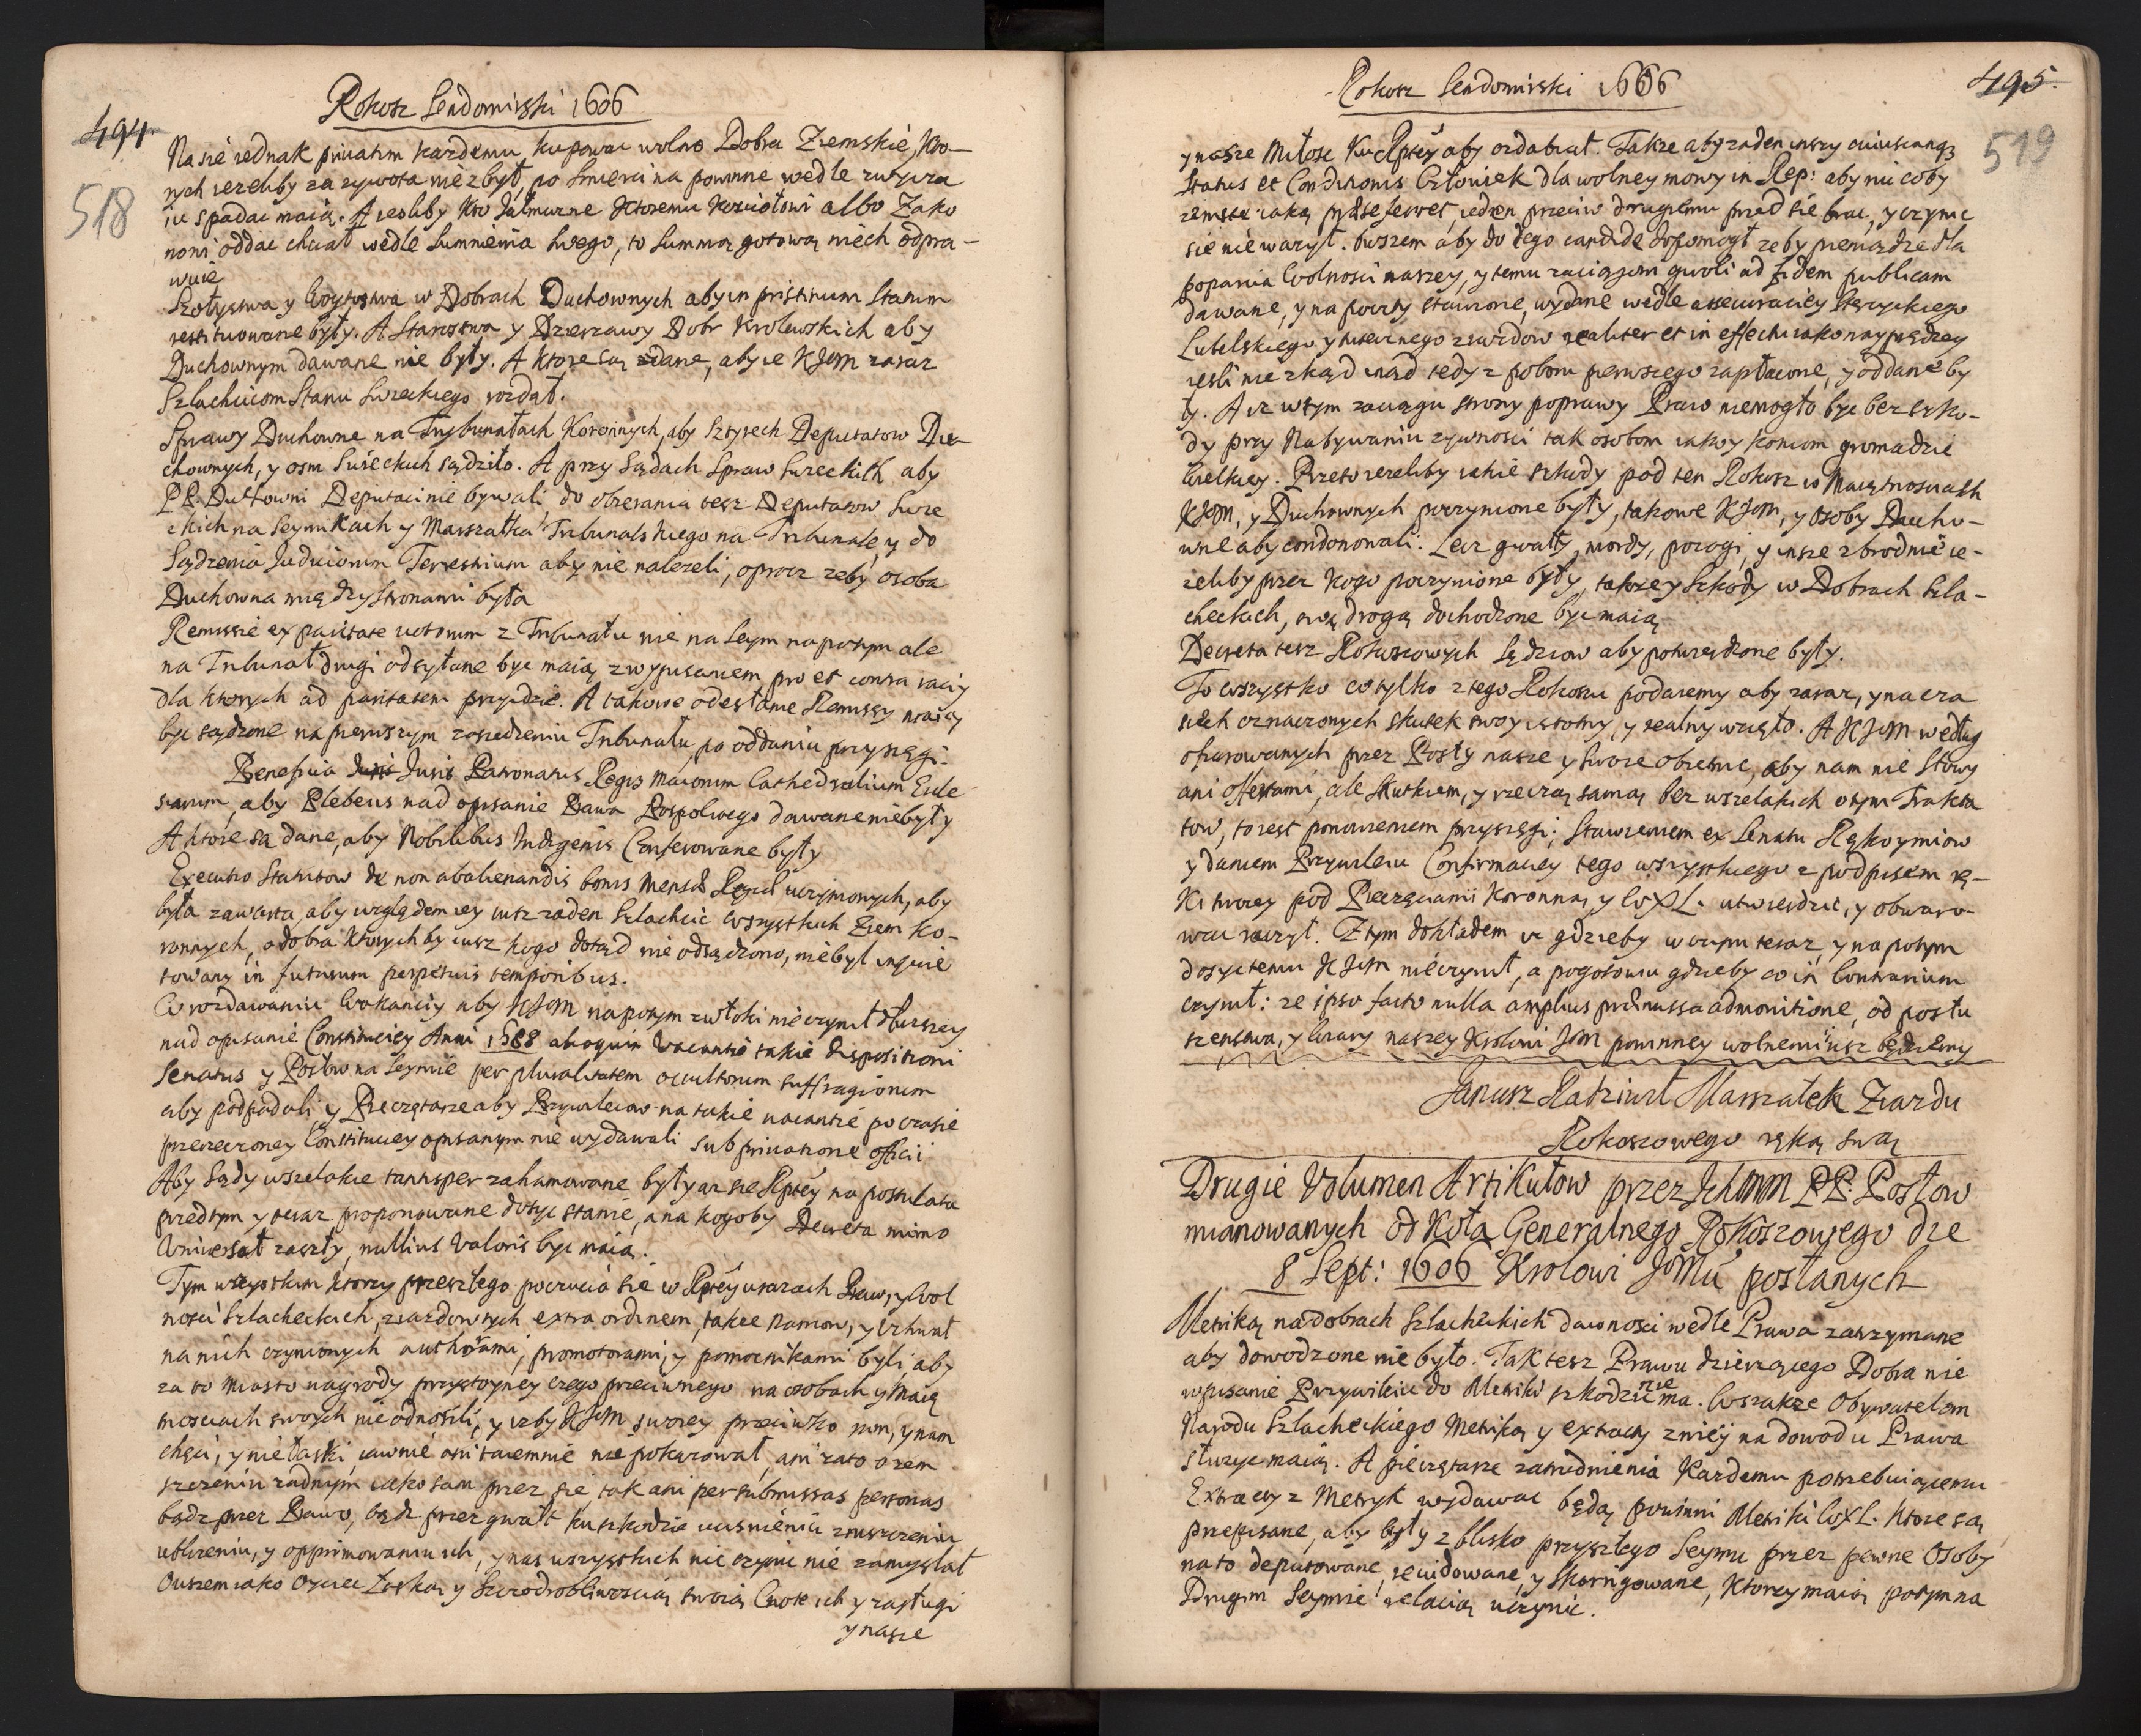 Rokosz Sendomirski 1606
494.
518
Na się iednak priuatim kazdemu kupować wolno Dobra Ziemskie, kto-
rych iezeliby za zywota nie zbył, po smierci na powinne wedle zwycza
iu spadać maią. A iesliby kto Jałmuzne ktoremu Kosciołowi albo Zako
nowi oddac chciał wedle sumnienia swego, to summą gotową niech odpra-
wuie
Szołtystwa y Woytostwa w Dobrach Duchownych aby in pristinum statum
restituowane były. A Starostwa y Dzierzawy Dobr Krolewskich aby
Duchownym dawane nie były. A ktore są dane, aby ie KJM zaraz
Szlachcicom Stanu Swieckiego rozdał.
Sprawy Duchowne na Trybunałach Koronnych, aby Sztyrech Deputatow Du-
chownych, y osm Swieckich sądziło. A przy Sądach Spraw Swieckich aby
PP. Duchowni Deputaci nie bywali, do obierania tesz Deputatow Swie
ckich na Seymikach y Marszałka Tribunalskiego na Tribunale, y do
Sądzenia Judiciorum Terrestrium aby nie nalezeli, oprocz zeby osoba
Duchowna między stronami była
Remissie ex paritate uotorum z Tribunału nie na Seym napotym ale
na Tribunał drugi odsyłane byc maią z wypisaniem pro et contra raciy
dla ktorych ad paritatem przydzie. A takowe odesłane Remissy maią
byc sądzone na pierwszym zasiedzeniu Tribunału, po oddaniu przysięgi.
Beneficia Juris Patronatus Regis maiorum Cathedralium Eccle
siarum, aby Plebeis nad opisanie Prawa Pospolitego dawane nie były
A ktore są dane, aby Nobilibus Indigenis Conferowane były
Executio Statutow de non abalienandis bonis Mensæ Regiæ uczynionych, aby
była zawarta, aby względem iey iusz zaden Szlachcic wszystkich Ziem Ko-
ronnych, o dobra ktorychby iusz kogo dotąd nie odsądzono, nie był inquie
towany in futurum perpetuis temporibus.
W rozdawaniu Wakanciy aby KJM napotym zwłoki nie czynił dłuzszey
nad opisanie Constituciey Anni 1588 alioquin Vacantie takie dispositioni
Senatus y Posłow na Seymie per pluralitatem occultorum suffragiorum
aby podpadali, y Pieczętarze aby Przywileiow na takie uacantie po czasie
przerzeczoney Constituciey opisanym nie wydawali sub priuatione officii
Aby Sądy wszelakie tantisper zahamowane były az sie Rptey na postulata
przedtym y teraz proponowane dosyc stanie, a na kogoby Decreta mimo
Uniwersał zaszły, nullius valoris byc maią.
Tym wszystkim ktorzy przeszłego poczucia się w Rptey urazach Praw, y Wol
nosci Szlacheckich, ziazdow tych extra ordinem, takze Namow, y Uchwał
na nich czynionych authorami, promotorami, y pomocnikami byli, aby
za to miasto nagrody przystoyney czego przeciwnego na osobach y Maię
tnosciach swoych nie odnosili, y izby KJM swoiey przeciwko nim, y nam
chęci, y niełaski iawnie ani taiemnie nie pokazował, ani za to o zem
szczeniu zadnym iako sam przez się, tak ani per submissas personas
bądz przez Prawo, bądz przez gwałt ku szkodzie ucisnieniu zniszczeniu
ubliżeniu, y opprimowaniu ich, y nas wszystkich nic czynic nie zamyslał
Owszem iako Ociec Łaską y Szczodrobliwoscią swoią Cnote ich y zasługi
y nasze
Rokosz Sendomirski 1606
495.
519
y nasze Miłosc Ku Rptey aby ozdabiał. Takze aby zaden inszy cuiuscunq3
Status et Conditionis Człowiek dla wolney mowy in Rep: aby nic coby
zemste iaką præ se ferret, ieden przeciw drugiemu przed sie brac, y czynic
sie nie wazył. Owszem aby do tego candide dopomogł zeby pieniądze dla
poparcia Wolnosci naszey, y temu zaciągom gwoli ad fidem publicam
dawane, y na poczty stawione, wydane wedle assecuraciey Stęzyckiego
Lubelskiego y tutecznego ziazdow realiter et in effectu iako nayprędzey
iesli nie zkąd inąd tedy z poboru pierwszego zapłacone, y oddane by
ły. A iz w tym zaciągu strony poprawy Praw niemogło byc bez szko-
dy przy Nabywaniu zywnosci tak osobom iako y koniom gromadzie
Wielkiey. Przeto iezeliby iakie szkody pod ten Rokosz w Maiętnosciach
KJM, y Duchownych poczynione były, takowe KJM, y Osoby Ducho-
wne aby condonowali. Lecz gwałty, mordy, pozogi, y insze zbrodnie ie-
zeliby przez kogo poczynione były, takze y Szkody w Dobrach Szla-
checkich, swą drogą dochodzone byc maią
Decreta tesz Rokoszowych Sędziow aby potwierdzone były.
To wszystko co tylko z tego Rokoszu podaiemy aby zaraz, y na cza
siech oznaczonych skutek swoy istotny, y realny wzięło. A KJM według
ofiarowanych przez Posły nasze y swoie obietnic, aby nam nie słowy
ani offertami, ale skutkiem, y rzeczą samą bez wszelakich o tym Trakta
tow, to iest ponowieniem przysięgi; Stawieniem ex Senatu Rękoymiow
y daniem Przywileiu Confirmaciey tego wszystkiego z podpisem rę-
ki swoiey pod Pieczęciami Koronną y WXL. utwierdzic, y obwaro-
wac raczył. Z tym dokładem iz gdzieby w czym teraz y na potym
dosyc temu KJM nie czynił, a pogotowiu gdzieby co in Contrarium
czynił: ze ipso facto nulla amplius præmissa admonitione, od posłu
szenstwa, y Wiary naszey Krolowi JM powinney wolnemi iusz będziemy
Janusz Radziwił Marszałek Ziazdu
Rokoszowego ręką swą
Drugie Volumen Artikułow przez Ichmm PP. Posłow
mianowanych od Koła Generalnego Rokoszowego die
8 Sept: 1606 Krolowi JMci posłanych
Metriką na dobrach Szlacheckich dawnosci wedle Prawa zatrzymane
aby dowodzone nie było. Tak tesz Prawu dzierzącego Dobra nie
wpisanie Przywileiu do Metriki szkodzic nie ma. Wszakze Obywatelom
Narodu Szlacheckiego Metriką y extracty z niey na dowodu Prawa
słuzyc maią. A pieczętarze zatrudnienia Kazdemu potrzebuiącemu
Extracty z Metryk wydawac będą powinni Metriki WXL. ktore są
przepisane, aby były z blisko przyszłego Seymu przez pewne Osoby
na to deputowane, rewidowane, y skorrigowane, ktorzy maią potym na
Drugim Seymie relacią uczynic.